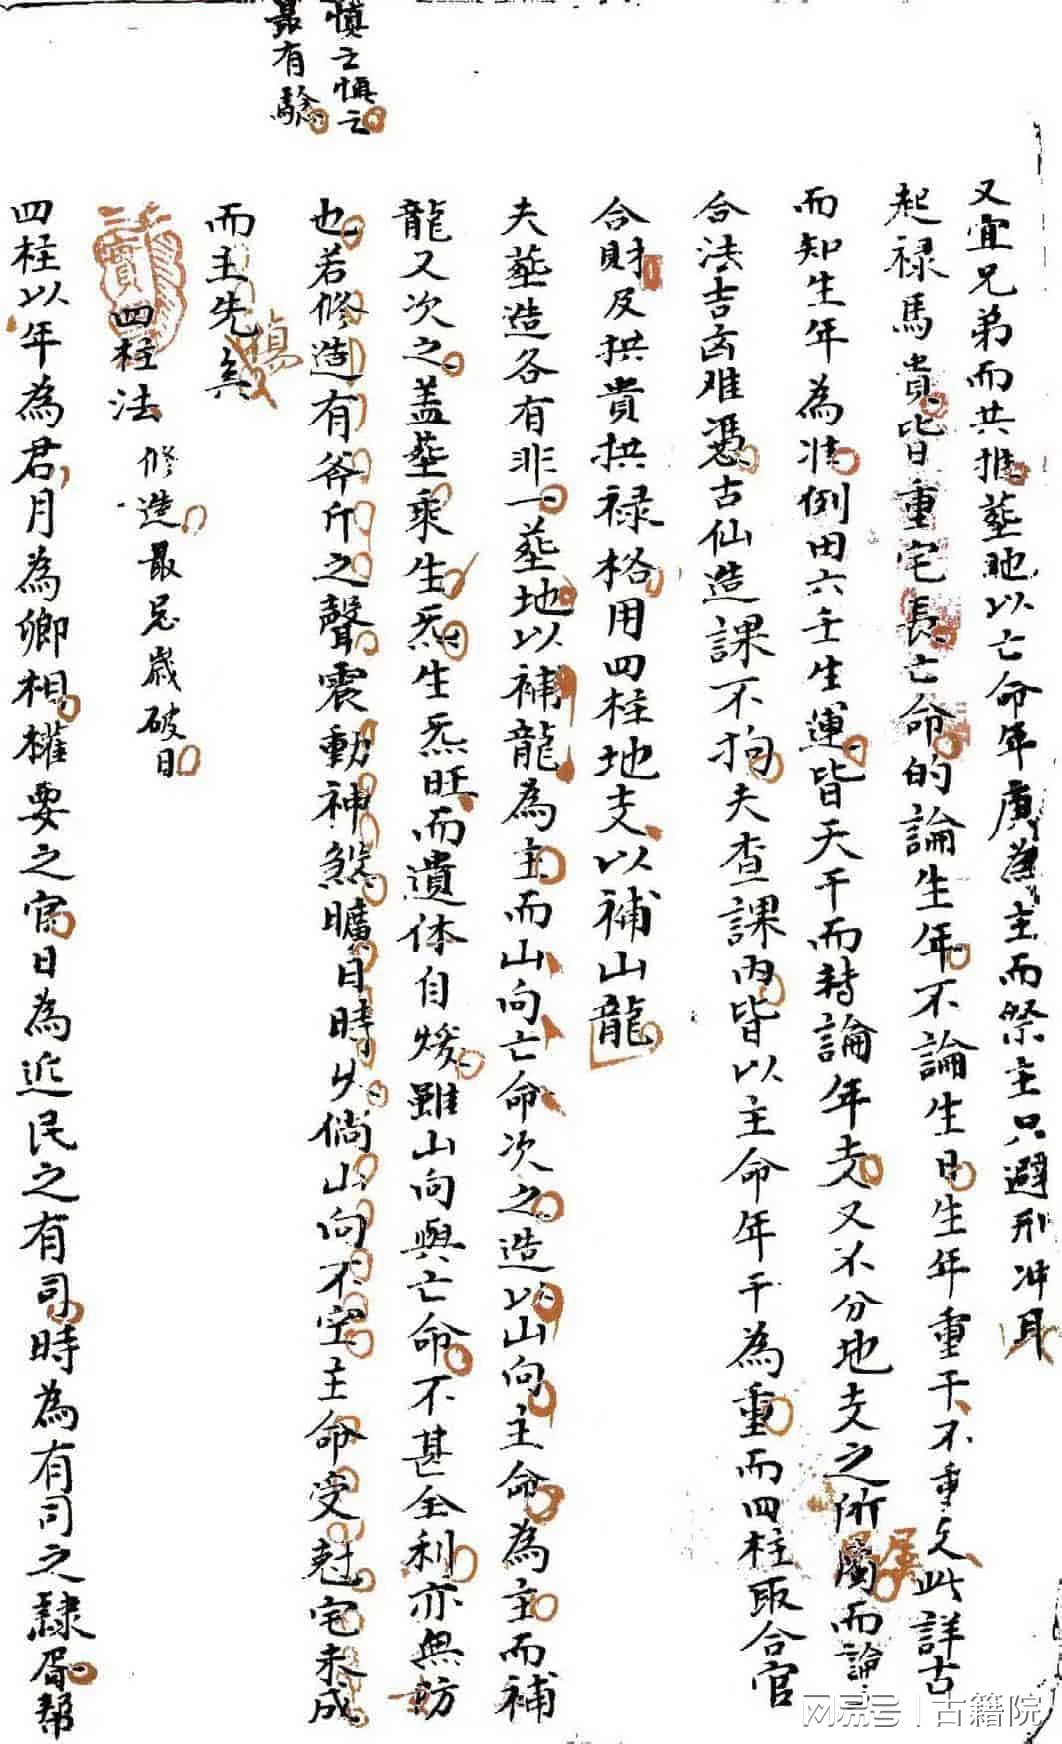 慎之慎之
最有驗
又宜兄弟而共推葬地以亡命年庚為主而祭主只避刑冲耳
起禄馬貴皆重宅長亡命的論生年不論生日生年重干不重支此詳古
而知生年為准例田六壬生運皆天干而轉論年支又不分地支之所屬而論
屬
合法吉凶难憑古仙造課不拘夫查課內皆以主命年干為重而四柱取合官
合財及拱貴拱禄格用四柱地支以補山龍
夫葬造各有非一葬地以補龍為主而山向亡命次之造以山向主命為主而補
龍又次之盖葬乘生炁生炁旺而遺体自煖雖山向與亡命不甚全利亦無妨
也若修造有斧斤之聲震動神煞曠日時久倘山向不空主命受尅宅未成
而主先矣
四柱法 修造最忌歲破日
四柱以年為君月為卿相權要之官日為近民之有司時為有司之隸胥幇
网易号 | 古籍院